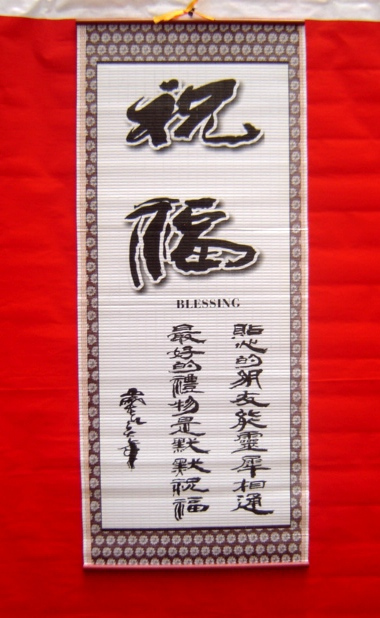 祝福
BLESSING
貼心的朋友能靈犀相通
最好的禮物是默默祝福